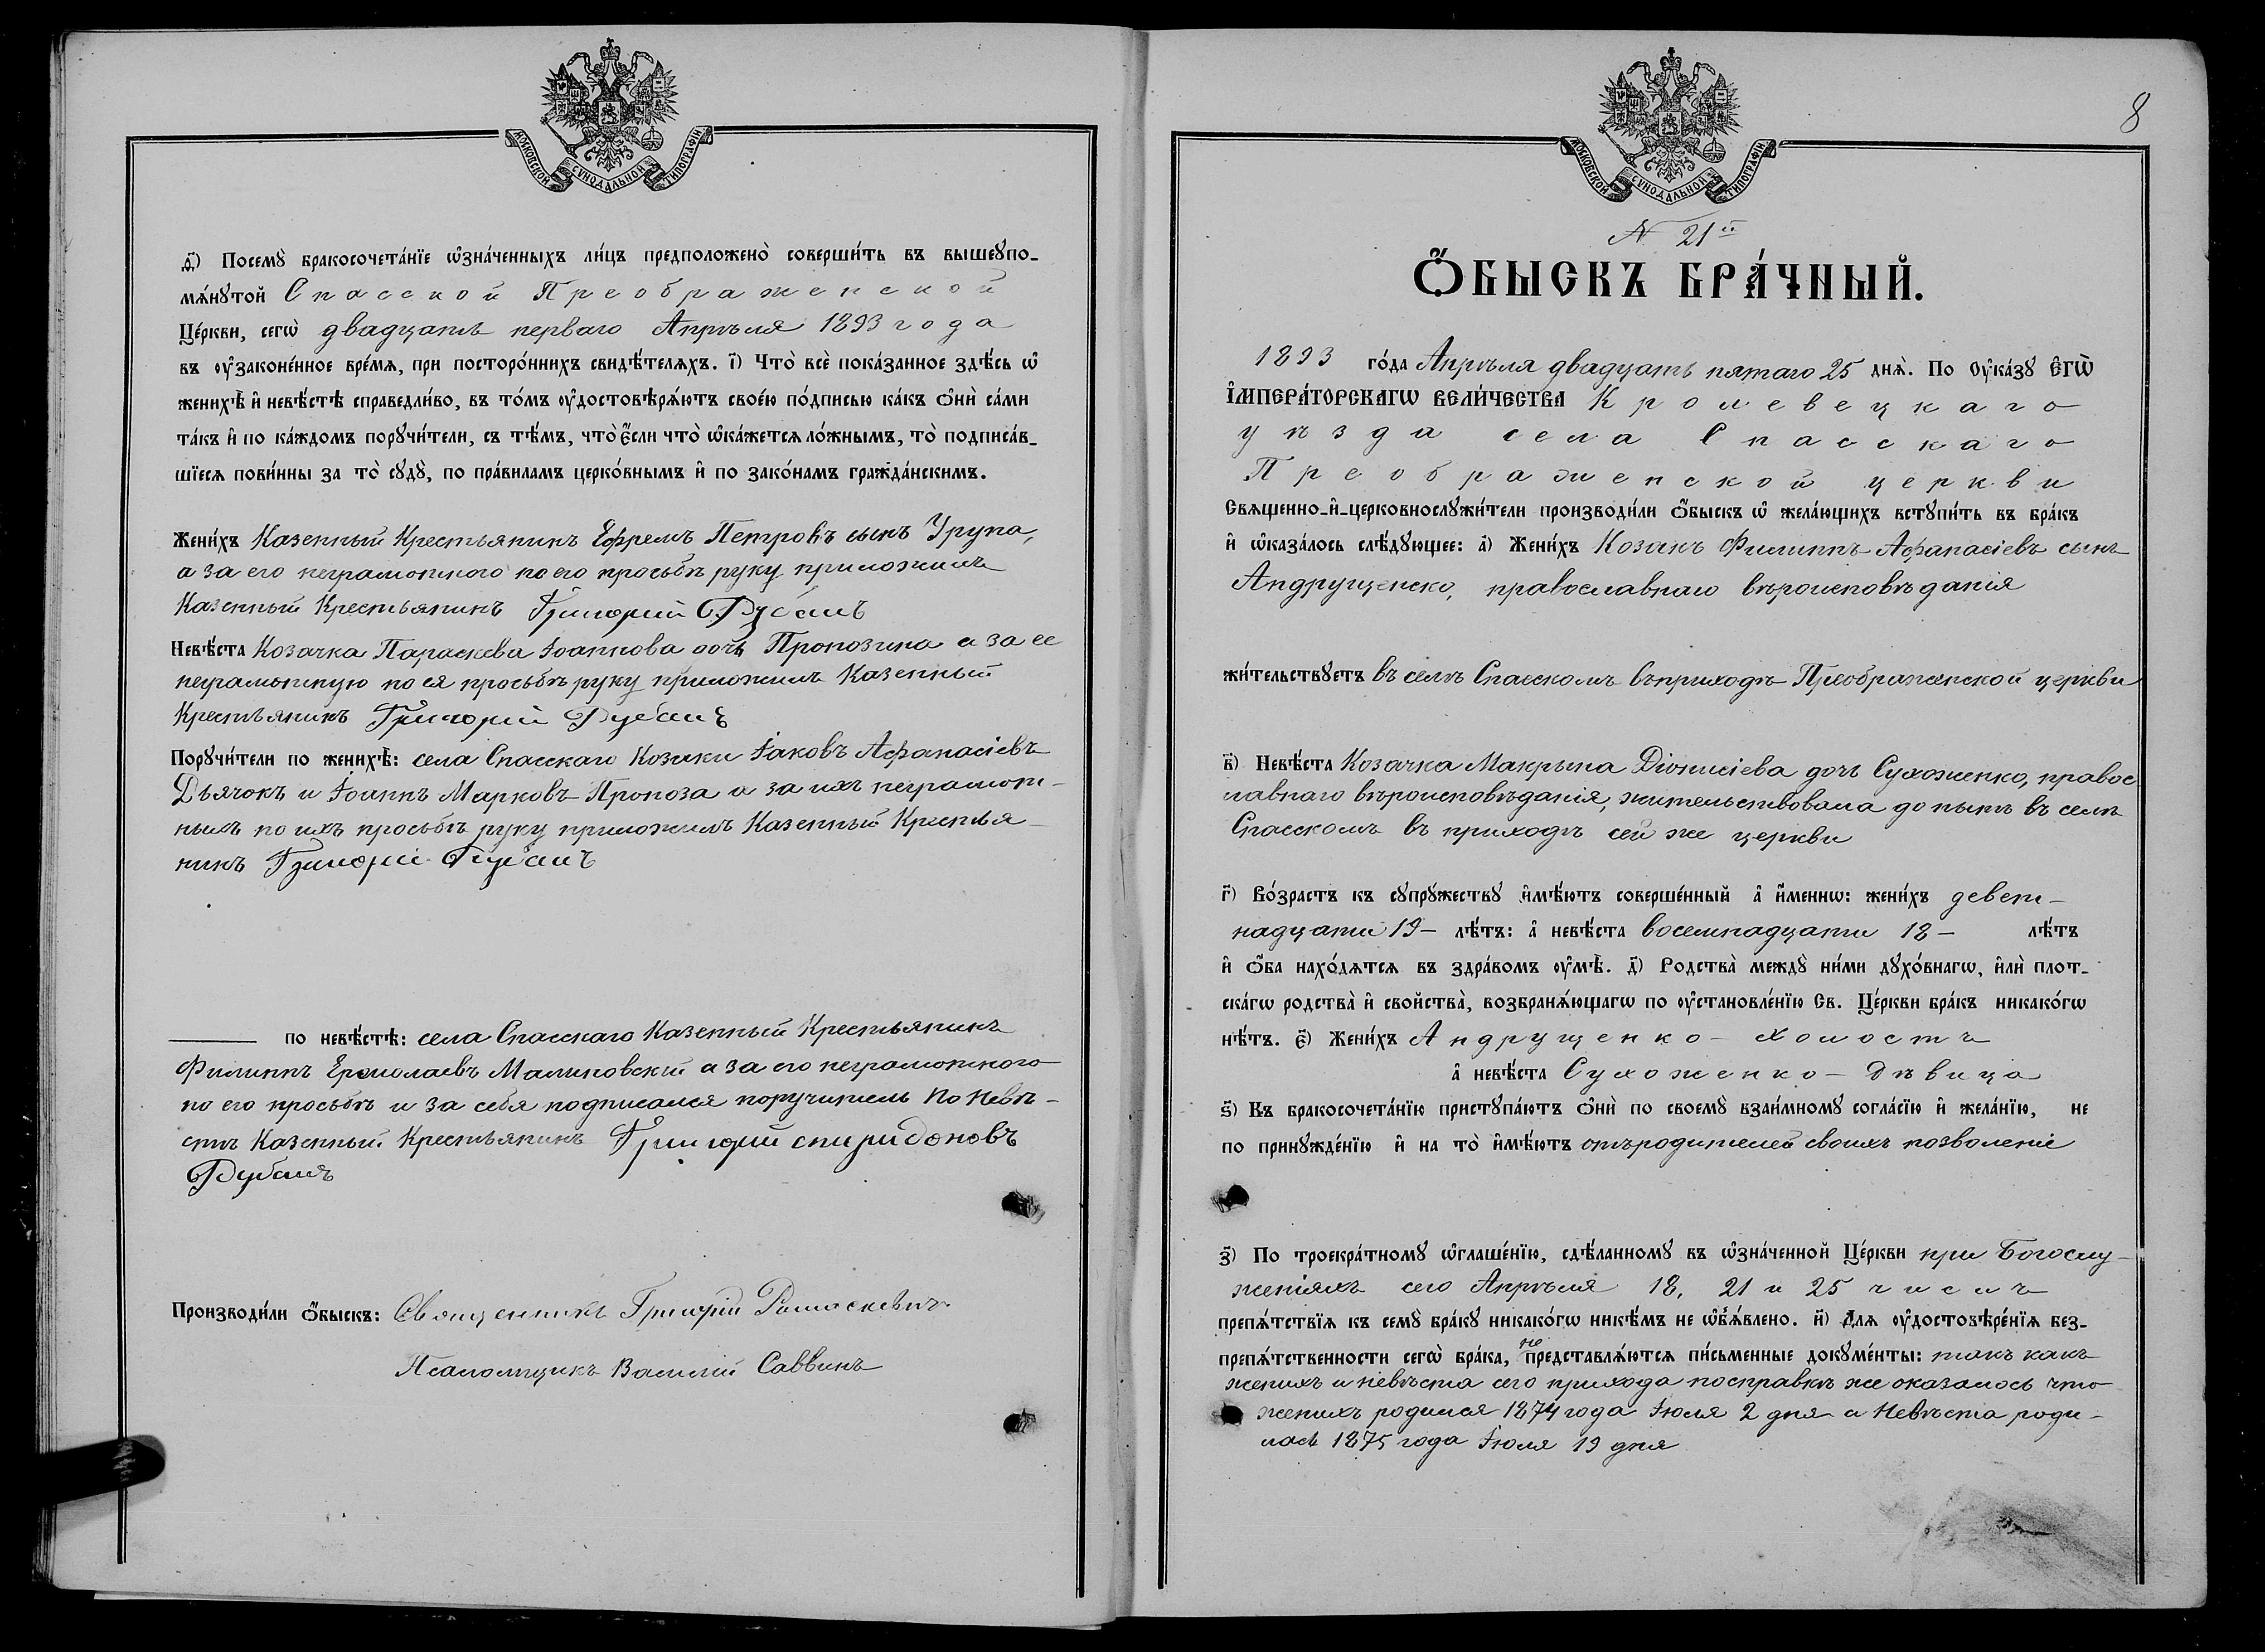 МОСКОВСКОЙ СѴНОДАЛЬНОЙ ТИПОГРАФІИ
д҃) Посемꙋ̀ бракосочета́нїе ѡ҆зна́ченныхъ ли́цъ предположено̀ соверши́ть въ вышеꙋпо-
мѧ́нꙋтой Спасской Преображенской
Це́ркви, сегѡ̀ двадцать перваго Апрѣля 1893 года
въ ᲂу҆законе́нное вре́мѧ, при посторо́ннихъ свидѣ́телѧхъ. і҃) Что̀ всѐ пока́занное здѣ́сь ѡ҆
женихѣ̀ и҆ невѣ́стѣ справедли́во, въ то́мъ ᲂу҆достовѣрѧ́ютъ свое́ю по́дписью ка́къ ѻ҆нѝ са́ми
та́къ и҆ по ка́ждомъ порꙋчи́тели, съ тѣ́мъ, что̀ є҆́сли что̀ ѡ҆ка́жетсѧ ло́жнымъ, то̀ подписа́в-
шїесѧ пови́нны за то̀ сꙋдꙋ̀, по пра́виламъ церко́внымъ и҆ по зако́намъ гражда́нскимъ.
Жени́хъ Казенный Крестьянинъ Ефремъ Петровъ сынъ Урупа,
а за его неграмотного по его просьбѣ руку приложилъ
Казенный Крестьянинъ Григорій Рубанъ
Невѣ́ста Козачка Параскева Іоаннова дочь Пропозина а за ее
неграмотную по ея просьбѣ руку приложилъ Казенный
Крестьянинъ Григорій Рубанъ
Порꙋчи́тели по женихѣ̀: села Спасскаго Козаки Іаковъ Афанасіевъ
Дьячокъ и Іоаннъ Марковъ Пропоза а за ихъ неграмот-
ныхъ по ихъ просьбѣ руку приложилъ Казенный Крестья-
нинъ Григорій Рубанъ
по невѣ́стѣ: села Спасскаго Казенный Крестьянинъ
Филиппъ Ермолаевъ Малиновскій а за его неграмотного
по его просьбѣ и за себя подписался поручитель по невѣ-
стѣ Казенный Крестьянинъ Григорий спиридоновъ
Рубанъ
Производи́ли ѻ҆́быскъ: Священникъ Григорій Ромаскевичъ
Псаломщикъ Василій Саввинъ
8
МОСКОВСКОЙ СѴНОДАЛЬНОЙ ТИПОГРАФІИ
N 21й
Ѻ҆́БЫСКЪ БРА́ЧНЫЙ.
1893 го́да Апрѣля двадцать пятаго 25 днѧ̀. По Оу҆ка́зꙋ Є҆гѡ̀
І҆МПЕРА́ТОРСКАГѠ ВЕЛИ́ЧЕСТВА Кролевецкаго
уѣзда села Спасскаго
Преображенской церкви
Свѧщенно-и҆-церковнослꙋжи́тели производи́ли ѻ҆́быскъ ѡ҆ жела́ющихъ встꙋпи́ть въ бра́къ
и҆ ѡ҆каза́лось слѣ́дꙋющее: а҃) Жени́хъ Козакъ Филиппъ Афанасіевъ сынъ
Андрущенко, православнаго вѣроисповѣданія
жи́тельствꙋетъ въ селѣ Спасскомъ въ приходѣ Преображенской церкви
в҃) Невѣ́ста Козачка Макрына Діонисіева дочь Сухоженко, правос
лавнаго вѣроисповѣданія, жительствовала до нынѣ въ селѣ
Спасскомъ въ приходѣ сей же церкви
г҃) Во́зрастъ къ сꙋпрꙋ́жествꙋ и҆мѣ́ютъ соверше́нный а҆ и҆́меннѡ: жени́хъ девят-
надцати 19- лѣ́тъ: а҆ невѣ́ста восемнадцати 18- лѣ́тъ
и҆ ѻ҆́ба нахо́дѧтсѧ въ здра́вомъ ᲂу҆мѣ̀. д҃) Родства̀ междꙋ̀ ни́ми дꙋхо́внагѡ, и҆лѝ плот-
ска́гѡ родства̀ и҆ свойства̀, возбранѧ́ющагѡ по ᲂу҆становле́нїю Св. Це́ркви бра́къ никако́гѡ
нѣ́тъ. є҃) Жени́хъ Андрущенко - холостъ
а҆ невѣ́ста Сухоженко - Дѣвица
ѕ҃) Къ бракосочета́нїю пристꙋпа́ютъ ѻ҆нѝ по своемꙋ̀ взаи́мномꙋ согла́сїю и҆ жела́нїю, не
по принꙋжде́нїю и҆ на то̀ и҆мѣ́ютъ отъ родителей своихъ позволеніе
з҃) По троекра́тномꙋ ѡ҆глаше́нїю, сдѣ́ланномꙋ въ ѡ҆зна́ченной Це́ркви при Богослу-
женіяхъ сего Апрѣля 18, 21 и 25 чиселъ
препѧ́тствїѧ къ семꙋ̀ бра́кꙋ никако́гѡ никѣ́мъ не ѡ҆б̾ѧ́влено. и҃) Длѧ ᲂу҆достовѣре́нїѧ без-
препѧ́тственности сегѡ̀ бра́ка, не представлѧ́ютсѧ пи́сьменные докꙋме́нты: такъ какъ
женихъ и невѣста сего прихода по справкѣ же оказалось что
женихъ родился 1874 года Іюля 2 дня а невѣста роди-
лась 1875 года Іюля 19 дня